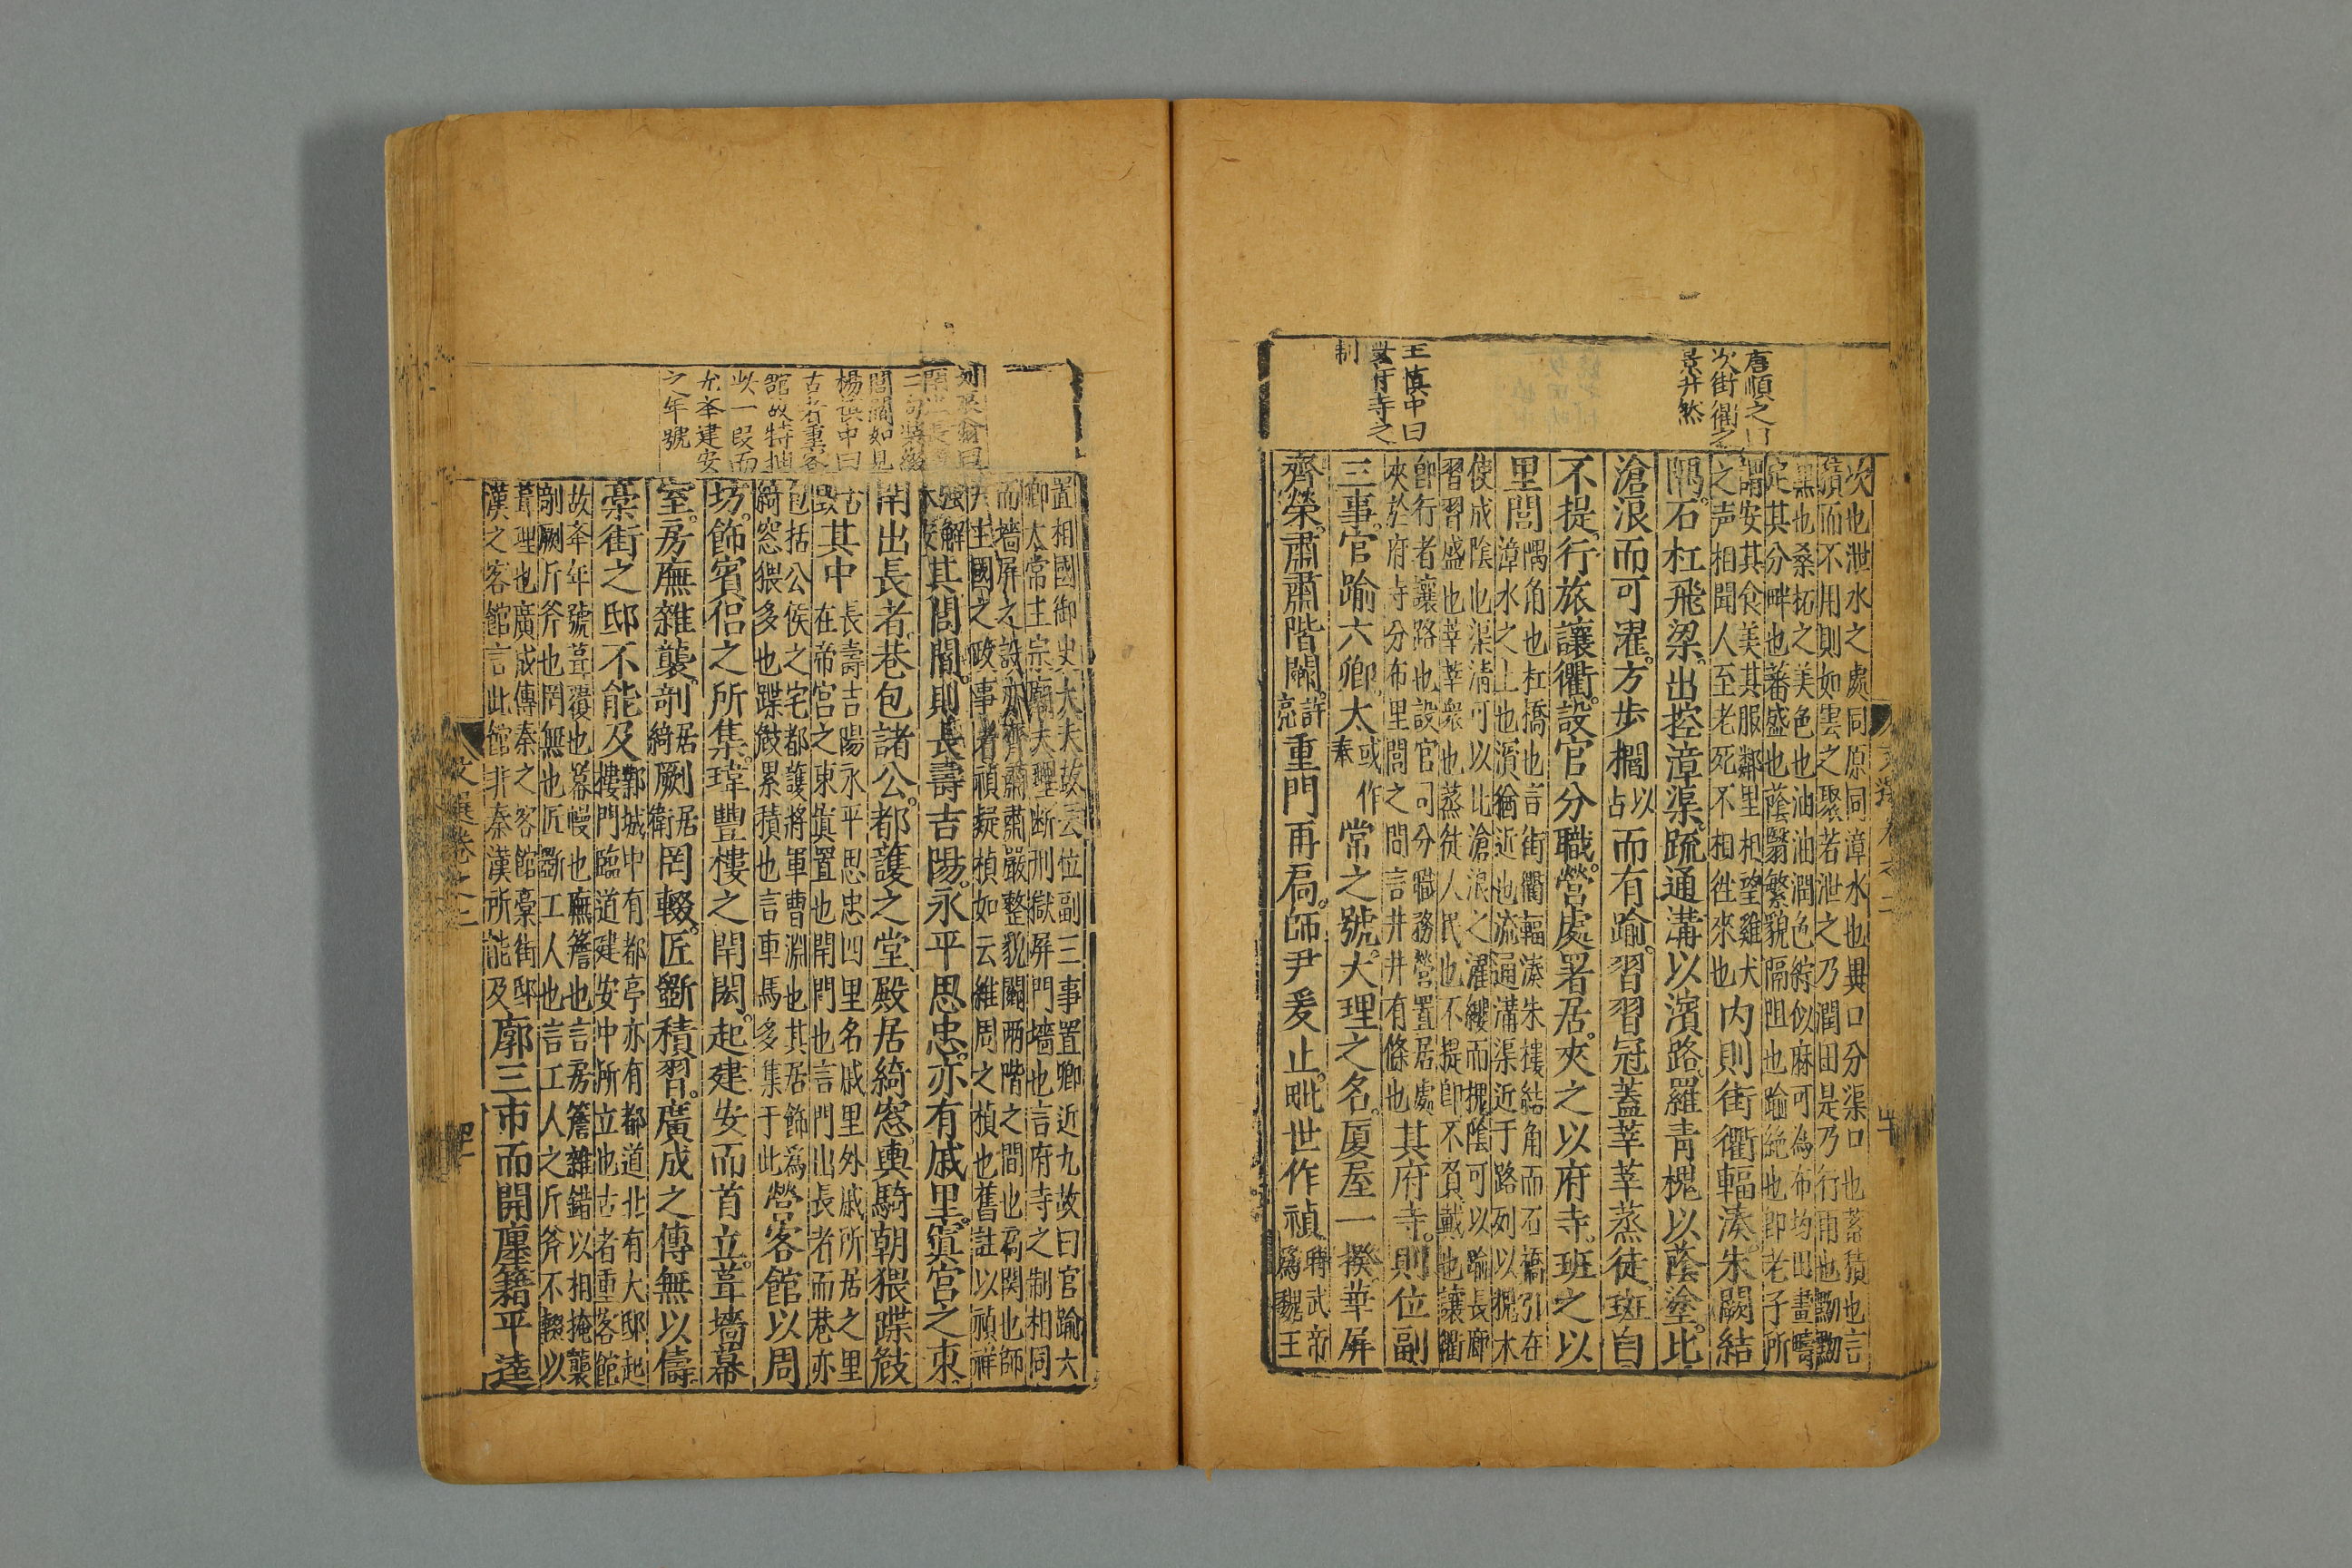 唐順之曰
次街衢之
景井然
王慎中曰
叢府寺之
制
次也泄水之處同原同漳水也異口分渠口也蓄積也言
積而不用則如雲之聚若泄之乃潤田是乃行雨也黝黝
黑也桑柘之美色也油油潤色紵似麻可為布均田畫疇
定其分畔也蕃盛也蔭翳繁貌隔阻也踰絶也即老子所
謂安其食美其服鄰里相望雞犬
之声相聞人至老死不相徃來也內則街衢輻湊朱闕結
隅石杠飛梁出控漳渠疏通溝以濱路羅青槐以蔭塗比
滄浪而可濯方步櫩以占而有踰習習冠蓋莘莘蒸徒斑白
不提行旅讓衢設官分職營處署居夾之以府寺班之以
里閭隅角也杜橋也言街衢輻湊朱樓結角而石橋引在
漳水之上也濱猶近也流通溝渠近于路列以槐木
使成陰也渠清可以比滄浪之濯纓而槐陰可以踰長廊
習習盛也莘莘衆也蒸徒人民也不提即不負戴也讓衢
卽行者讓路也設官司分職務營置居處
夾於府寺分布里閭之間言井井有條也其府寺則位副
三事官踰六卿大或作奉常之號大理之名厦屋一揆華屏
齊榮肅肅階闥許亮重門再扃師尹爰止毗世作禎時武帝爲魏王
刘辰翁曰
閈出長者
二句裝綴
閭閻如見
楊慎中曰
古者重客
館故特抽
此一段而
尤夲建安
之年號
置相國御史大夫故云位副三事置卿近九故曰官踰六
卿太常主宗廟大理断刑獄屏門墻也言府寺之制相同
而墻屏之設亦齊肅肅嚴整貌闥兩階之間也扃関也師
尹主國之政事者禎疑楨如云維周之楨也舊註以禎祥
强解未安其閭閻則長壽吉陽永平思忠亦有戚里寘宮之東
閈出長者巷包諸公都護之堂殿居綺窓輿騎朝猥蹀㪇
其中長壽吉陽永平思忠四里名戚里外戚所居之里
在帝宮之東寘置也閈門也言門出長者而巷亦
包括公侯之宅都護將軍曹淵也其居飾為
綺窓猥多也蹀㪇累積也言車馬多集于此營客館以周
坊飾賓侶之所集瑋豐樓之閈閎起建安而首立葺墻幕
室房廡雜襲剞居綺劂居衛罔輟匠斵積習廣成之傳無以儔
槀街之邸不能及鄴城中有都亭亦有都道北有大邸起
樓門臨道建安中所立也古者重客館
故夲年號葺覆也幕幔也廡簷也言房簷雜錯以相掩襲
剞劂斤斧也罔無也匠斵工人也言工人之斤斧不輟以
葺理也廣成傳秦之客館槀街邸
漢之客館言此館非秦漢所能及廓三市而開廛籍平逵
文選卷之二